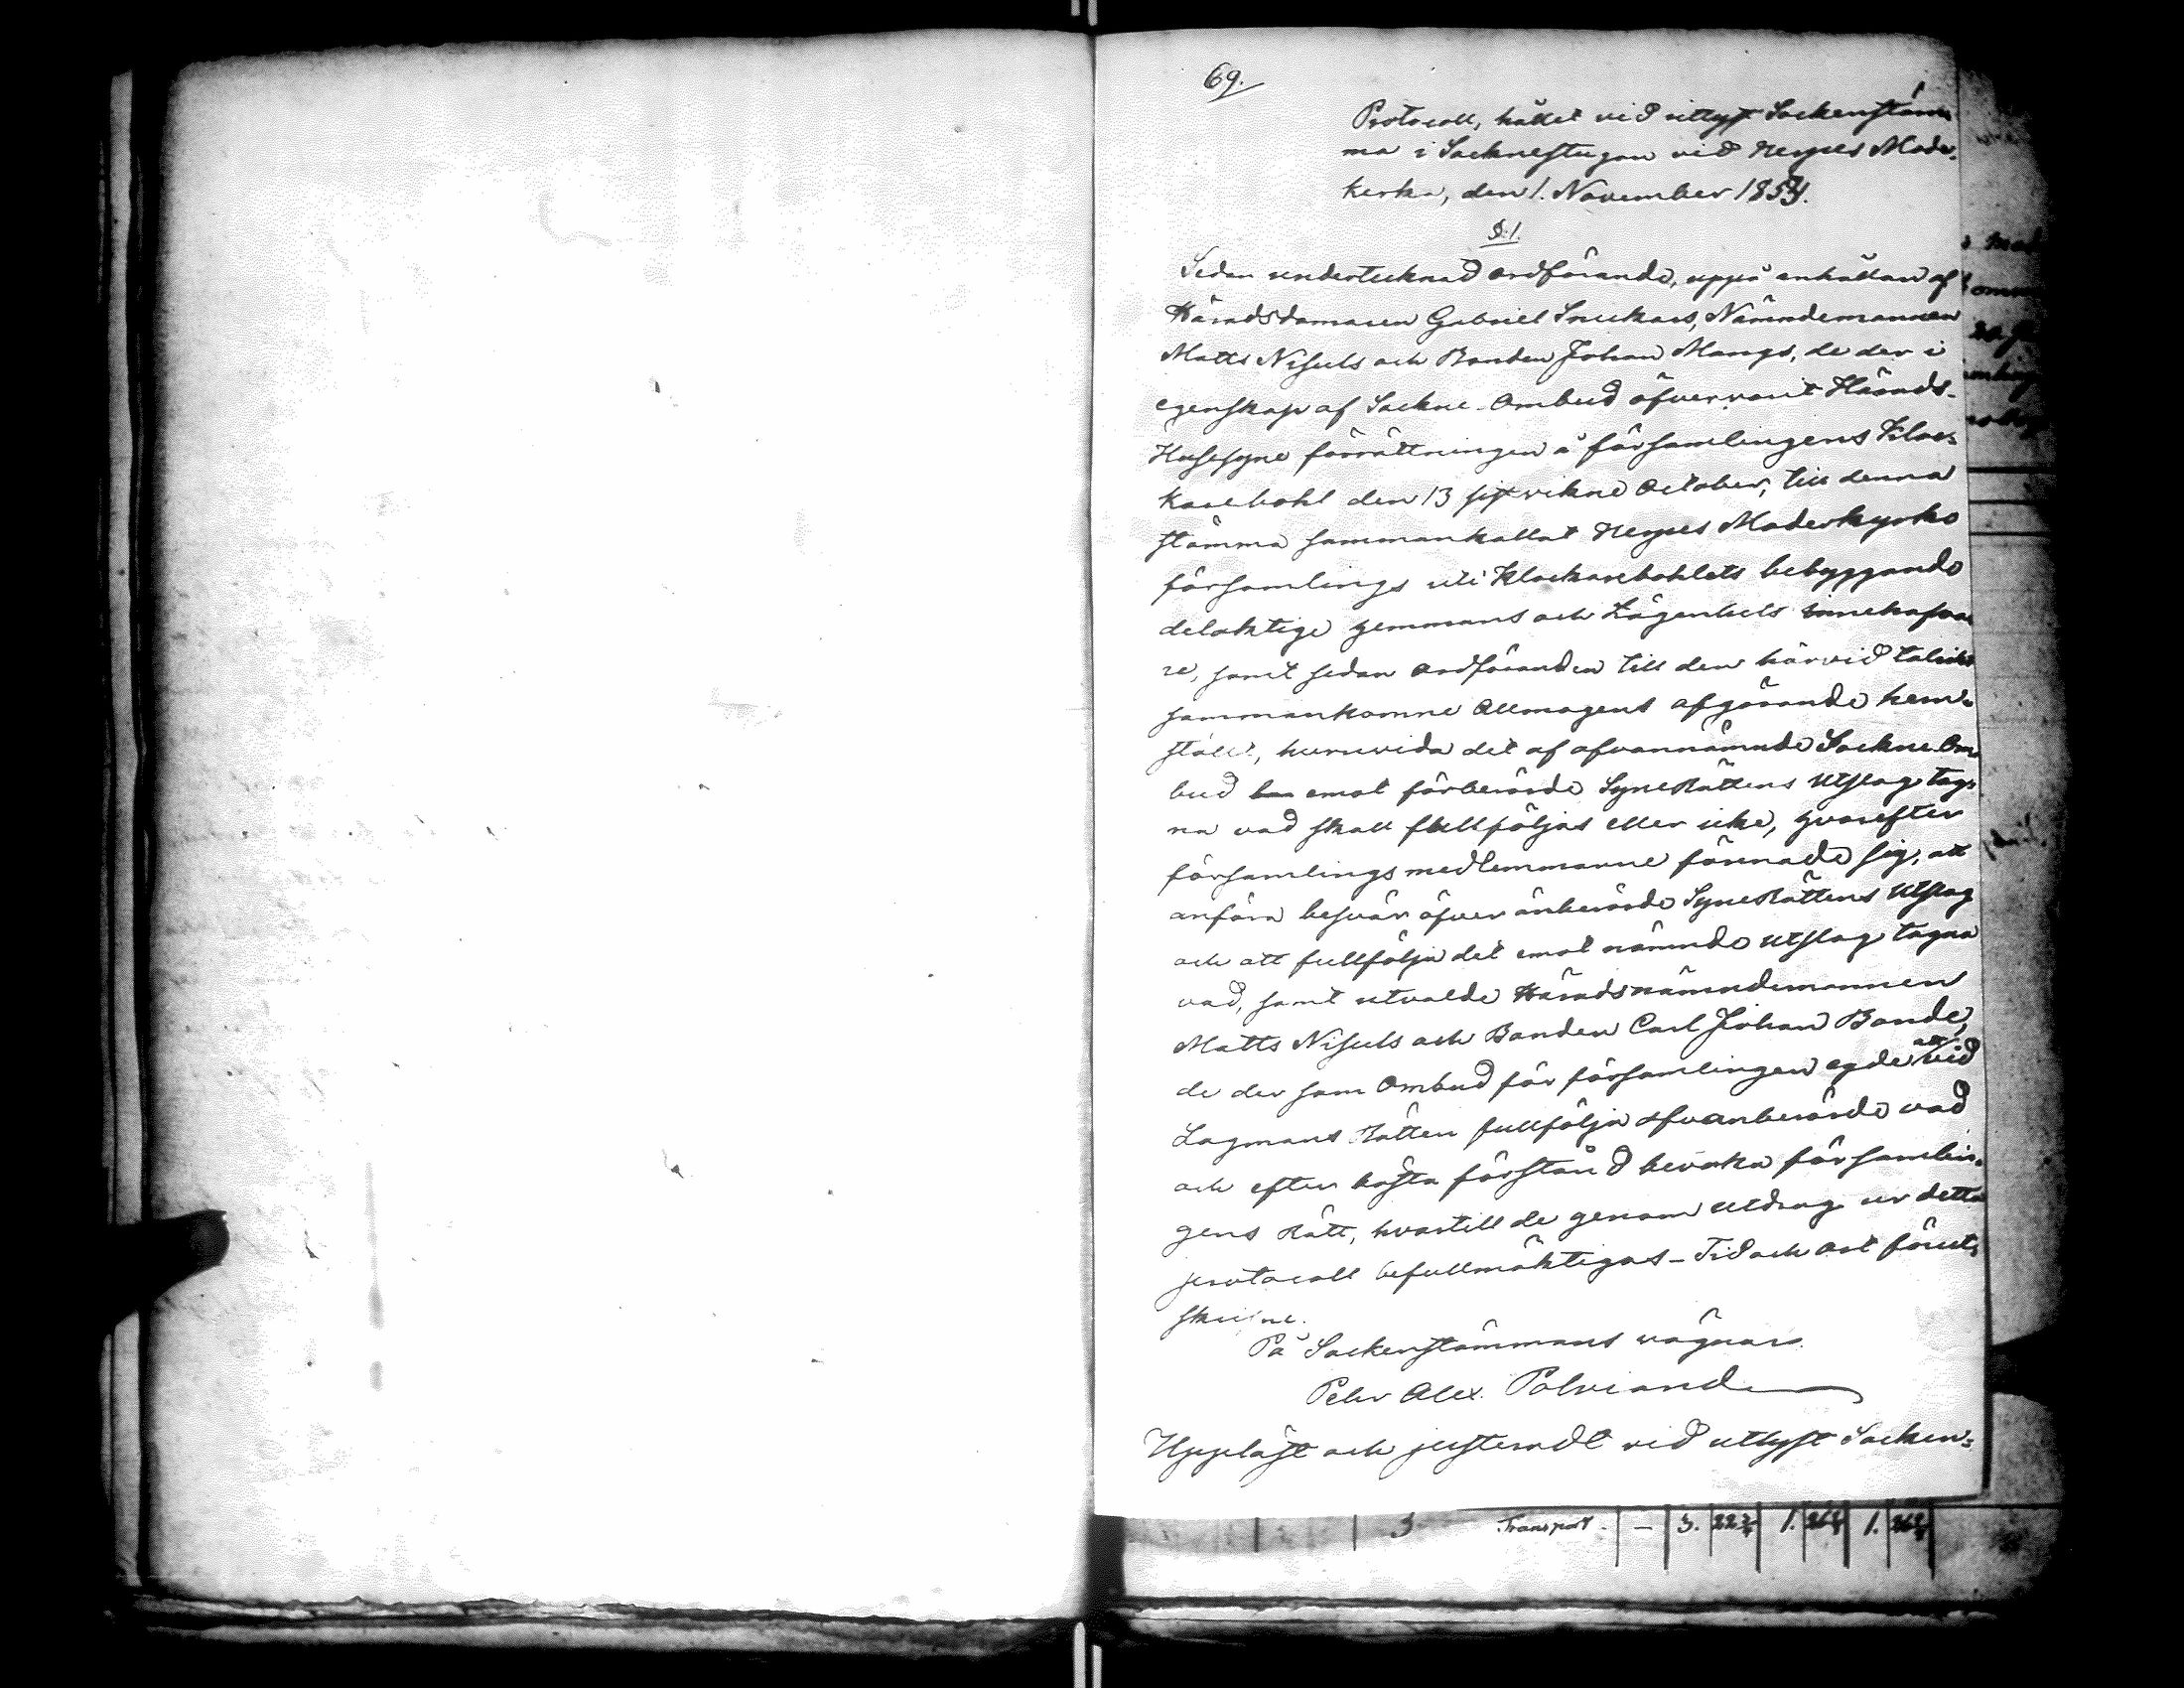 69.
Protocoll, hållet vid utlyst Sockenstäm
ma i Socknestugan vid Nerpes Moder-
kerka, den 1. November 1854.
§.1.
Sedan undertecknad ordförande, uppå anhållan af
Häradsdomaren Gabriel Snickars, Nämndemannen
Matts Nisuls och Bonden Johan Mangs, de der i
egenskap af Sockne-Ombud öfvervarit Härads-
Husesyne förrättningen å församlingens Kloc-
karebohl den 13 sistvikne October, till denna
stämma sammankallat Nerpes Moderkyrko
församlings uti Klockarebohlets bebyggande
delaktige hemmans och Lägenhets innehafva
re, samt sedan Ordföranden till den härvid talrikt
sammankomne Allmogens afgörande hem-
ställt, huruvida det af ofvannämnde Sockne-Om-
bud emot förberörde SyneRättens Utslag tag-
na vad skall fullföljas eller icke, hvarefter
församlingsmedlemmarne förenade sig, att
anföra besvär öfver änberörde SyneRättens Utslag
och att fullfölja det emot nämnde Utslag tagna
vad, samt utvalde Häradsnämndemannen
Matts Nisuls och Bonden Carl Johan Bonde,
de der som Ombud för församlingen egde att vid
Lagmans Rätten fullfölja ofvanberörde vad
och efter bästa förstånd bevaka församlin-
gens Rätt, hvartill de genom utdrag ur detta
protocoll befullmäktigas – Tid och ort förut
skrifne.
På Sockenstämmans vägnar.
Pehr Alex. Polviander
Uppläst och justeradt vid utlyst Socken-
3 Transport. — 3. 1. 1.